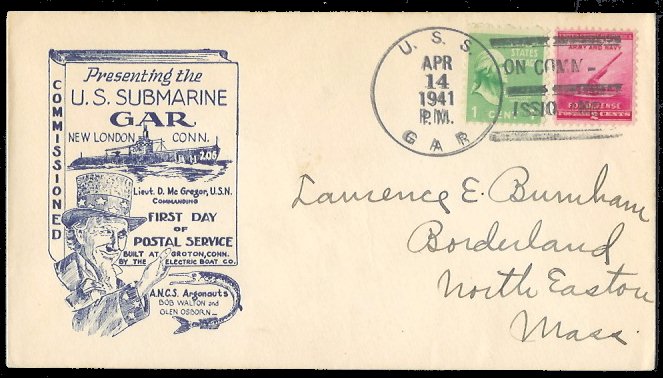 COMMISSIONED
Presenting the
U.S. SUBMARINE
GAR
NEW LONDON CONN.
206
Lieut. D. Mc Gregor, U.S.N.
COMMANDING
FIRST DAY
OF
POSTAL SERVICE
BUILT AT GROTON, CONN.
BY THE ELECTRIC BOAT CO.
A.N.C.S. Argonauts
BOB WALTON and
GLEN OSBORN
U. S. S.
APR
14
1941
P.M.
GAR
STATES
1
ARMY AND NAVY
FOR DEFENSE
CENTS
ON COMM-
ISSIO
Laurence E. Burnham
Borderland
North Easton
Mass.